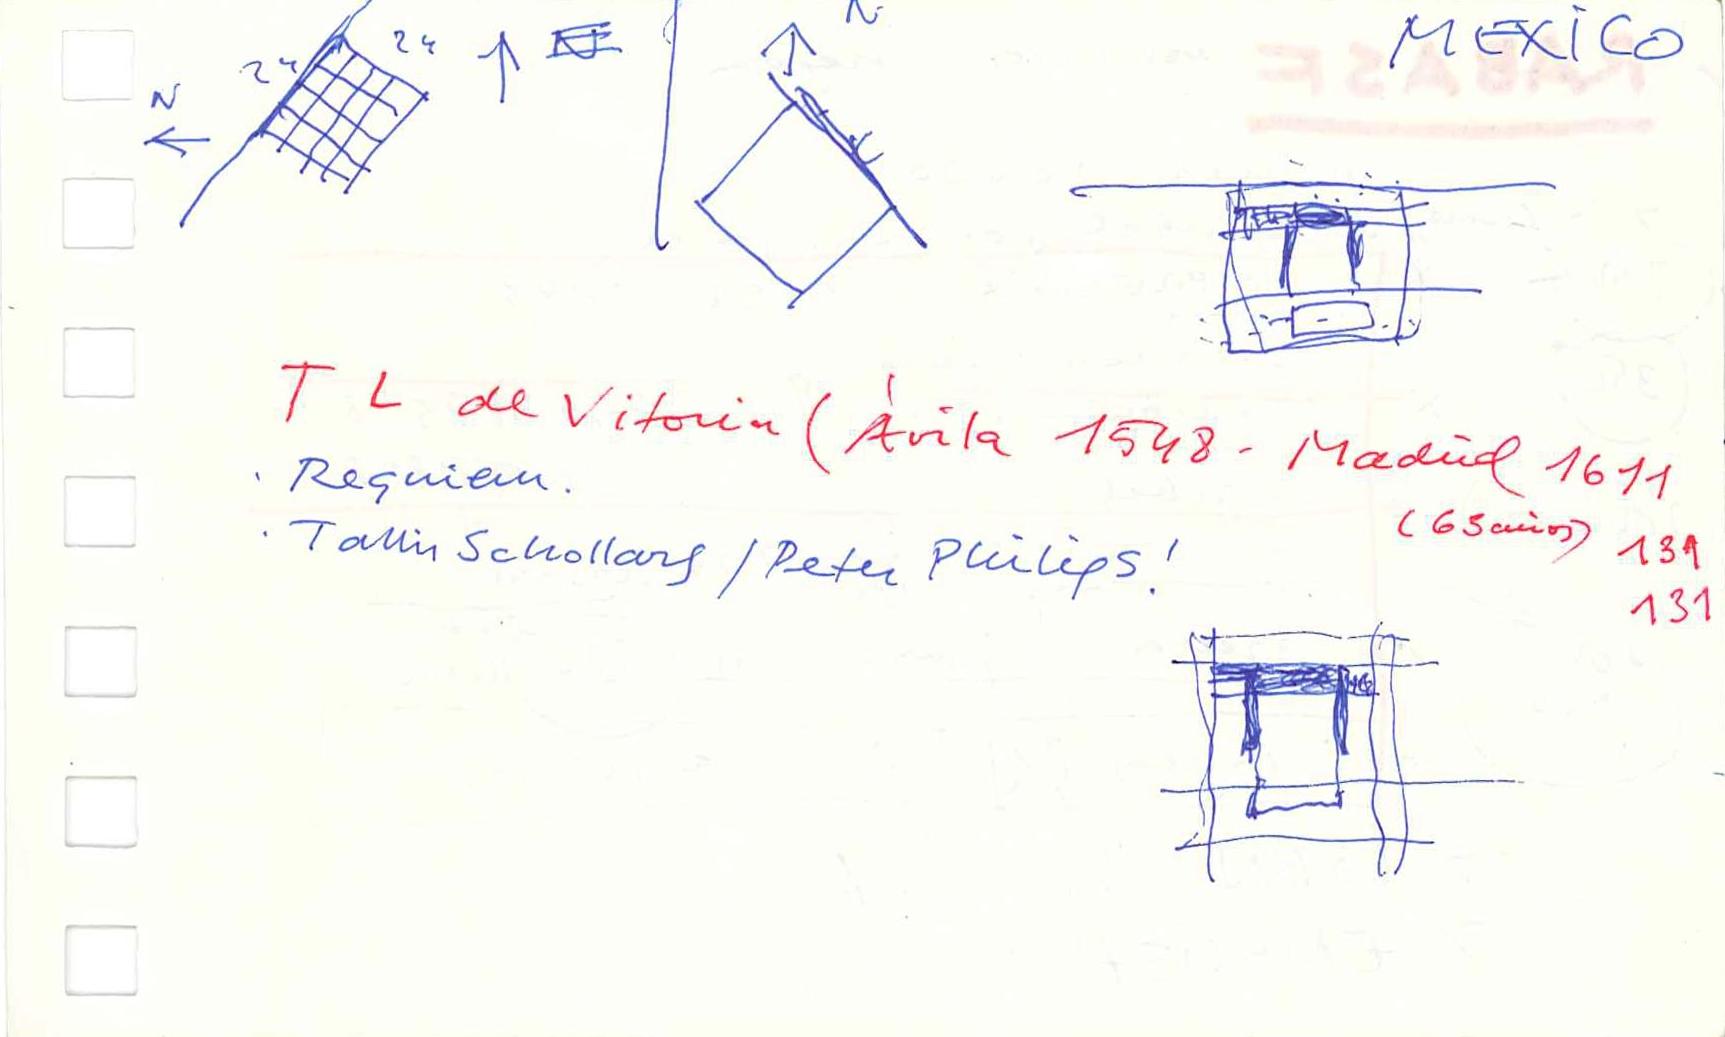 MEXICO
24 24
N
N
T L de Vitoria (Ávila 1548 - Madrid 1611
(63 años)
· Requiem.
· Tallis Schollars / Peter Philips!
131
131